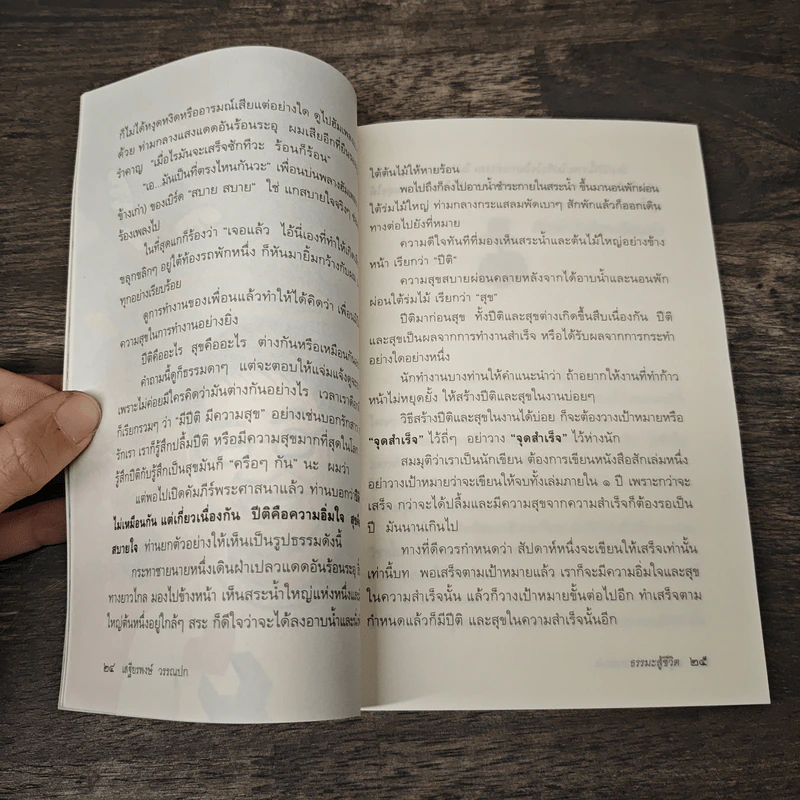 ก็ไม่ได้หงุดหงิดหรืออารมณ์เสียแต่อย่างใด ดูไปฮัมเพลง
ด้วย ท่ามกลางแสงแดดอันร้อนระอุ ผมเสียอีกที่ยืน
รำคาญ "เมื่อไรมันจะเสร็จซักทีวะ ร้อนก็ร้อน"
"เอ...มันเป็นที่ตรงไหนกันวะ" เพื่อนบ่นพลางฮัมเพลง
ข้างเก่า) ของเบิร์ด "สบาย สบาย" ใช่ แกสบายใจจริงๆ
ร้องเพลงไป
ในที่สุดแกก็ร้องว่า "เจอแล้ว ไอ้นี่เองที่ทำให้เกิด
ขลุกขลิกๆ อยู่ใต้ท้องรถพักหนึ่ง ก็หันมายิ้มกว้างกับผม
ทุกอย่างเรียบร้อย
ดูการทำงานของเพื่อนแล้วทำให้ได้คิดว่า เพื่อน
ความสุขในการทำงานอย่างยิ่ง
ปีติคืออะไร สุขคืออะไร ต่างกันหรือเหมือนกัน
คำถามนี้ดูก็ธรรมดาๆ แต่จะตอบให้แจ่มแจ้งดู
เพราะไม่ค่อยมีใครคิดว่ามันต่างกันอย่างไร เวลาเรา
ก็เรียกรวมๆ ว่า "มีปีติ มีความสุข" อย่างเช่นบอกรัก
รักเรา เราก็รู้สึกปลื้มปีติ หรือมีความสุขมากที่สุดในโลก
รู้สึกปีติกับรู้สึกเป็นสุขมันก็ "ครือๆ กัน" นะ ผมว่า
แต่พอไปเปิดคัมภีร์พระศาสนาแล้ว ท่านบอกว่า
ไม่เหมือนกัน แต่เกี่ยวเนื่องกัน ปีติคือความอิ่มใจ สุข
สบายใจ ท่านยกตัวอย่างให้เห็นเป็นรูปธรรมดังนี้
กระทาชายนายหนึ่งเดินฝ่าเปลวแดดอันร้อนระอุ
ทางยาวไกล มองไปข้างหน้า เห็นสระน้ำใหญ่แห่งหนึ่งและ
ใหญ่ต้นหนึ่งอยู่ใกล้ๆ สระ ก็ดีใจว่าจะได้ลงอาบน้ำและ
๒๔ เสฐียรพงษ์ วรรณปก
ใต้ต้นไม้ให้หายร้อน
พอไปถึงก็ลงไปอาบน้ำชำระกายในสระน้ำ ขึ้นมานอนพักผ่อน
ใต้ร่มไม้ใหญ่ ท่ามกลางกระแสลมพัดเบาๆ สักพักแล้วก็ออกเดิน
ทางต่อไปยังที่หมาย
ความดีใจทันทีที่มองเห็นสระน้ำและต้นไม้ใหญ่อย่างข้าง
หน้า เรียกว่า "ปีติ"
ความสุขสบายผ่อนคลายหลังจากได้อาบน้ำและนอนพัก
ผ่อนใต้ร่มไม้ เรียกว่า "สุข"
ปีติมาก่อนสุข ทั้งปีติและสุขต่างเกิดขึ้นสืบเนื่องกัน ปีติ
และสุขเป็นผลจากการทำงานสำเร็จ หรือได้รับผลจากการกระทำ
อย่างใดอย่างหนึ่ง
นักทำงานบางท่านให้คำแนะนำว่า ถ้าอยากให้งานที่ทำก้าว
หน้าไม่หยุดยั้ง ให้สร้างปีติและสุขในงานบ่อยๆ
วิธีสร้างปีติและสุขในงานได้บ่อย ก็จะต้องวางเป้าหมายหรือ
"จุดสำเร็จ" ไว้ถี่ๆ อย่าวาง "จุดสำเร็จ" ไว้ห่างนัก
สมมุติว่าเราเป็นนักเขียน ต้องการเขียนหนังสือสักเล่มหนึ่ง
อย่าวางเป้าหมายว่าจะเขียนให้จบทั้งเล่มภายใน ๑ ปี เพราะกว่าจะ
เสร็จ กว่าจะได้ปลื้มและมีความสุขจากความสำเร็จก็ต้องรอเป็น
ปี มันนานเกินไป
ทางที่ดีควรกำหนดว่า สัปดาห์หนึ่งจะเขียนให้เสร็จเท่านั้น
เท่านี้บท พอเสร็จตามเป้าหมายแล้ว เราก็จะมีความอิ่มใจและสุข
ในความสำเร็จนั้น แล้วก็วางเป้าหมายขั้นต่อไปอีก ทำเสร็จตาม
กำหนดแล้วก็มีปีติ และสุขในความสำเร็จนั้นอีก
ธรรมะสู้ชีวิต ๒๕